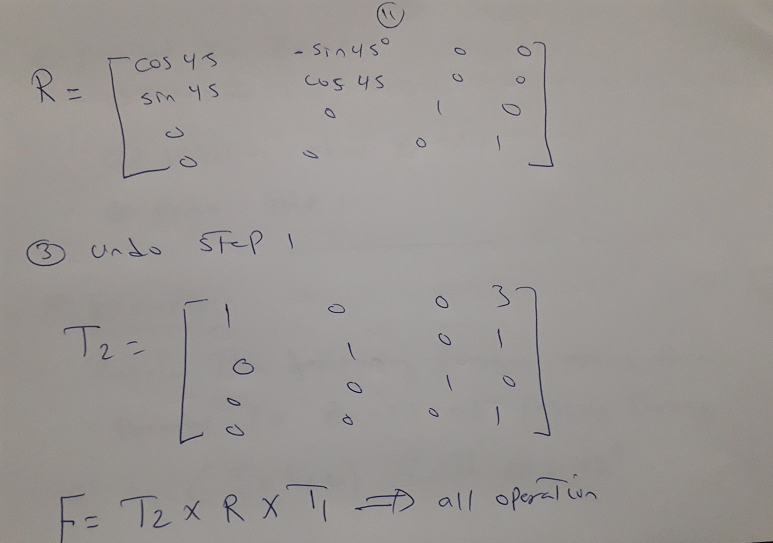 11
R = [ cos 45 -sin 45° 0 0
sin 45 cos 45 0 0
0 0 1 0
0 0 0 1 ]
③ undo step 1
T2 = [ 1 0 0 3
0 1 0 1
0 0 1 0
0 0 0 1 ]
F = T2 × R × T1 ⇒ all operation